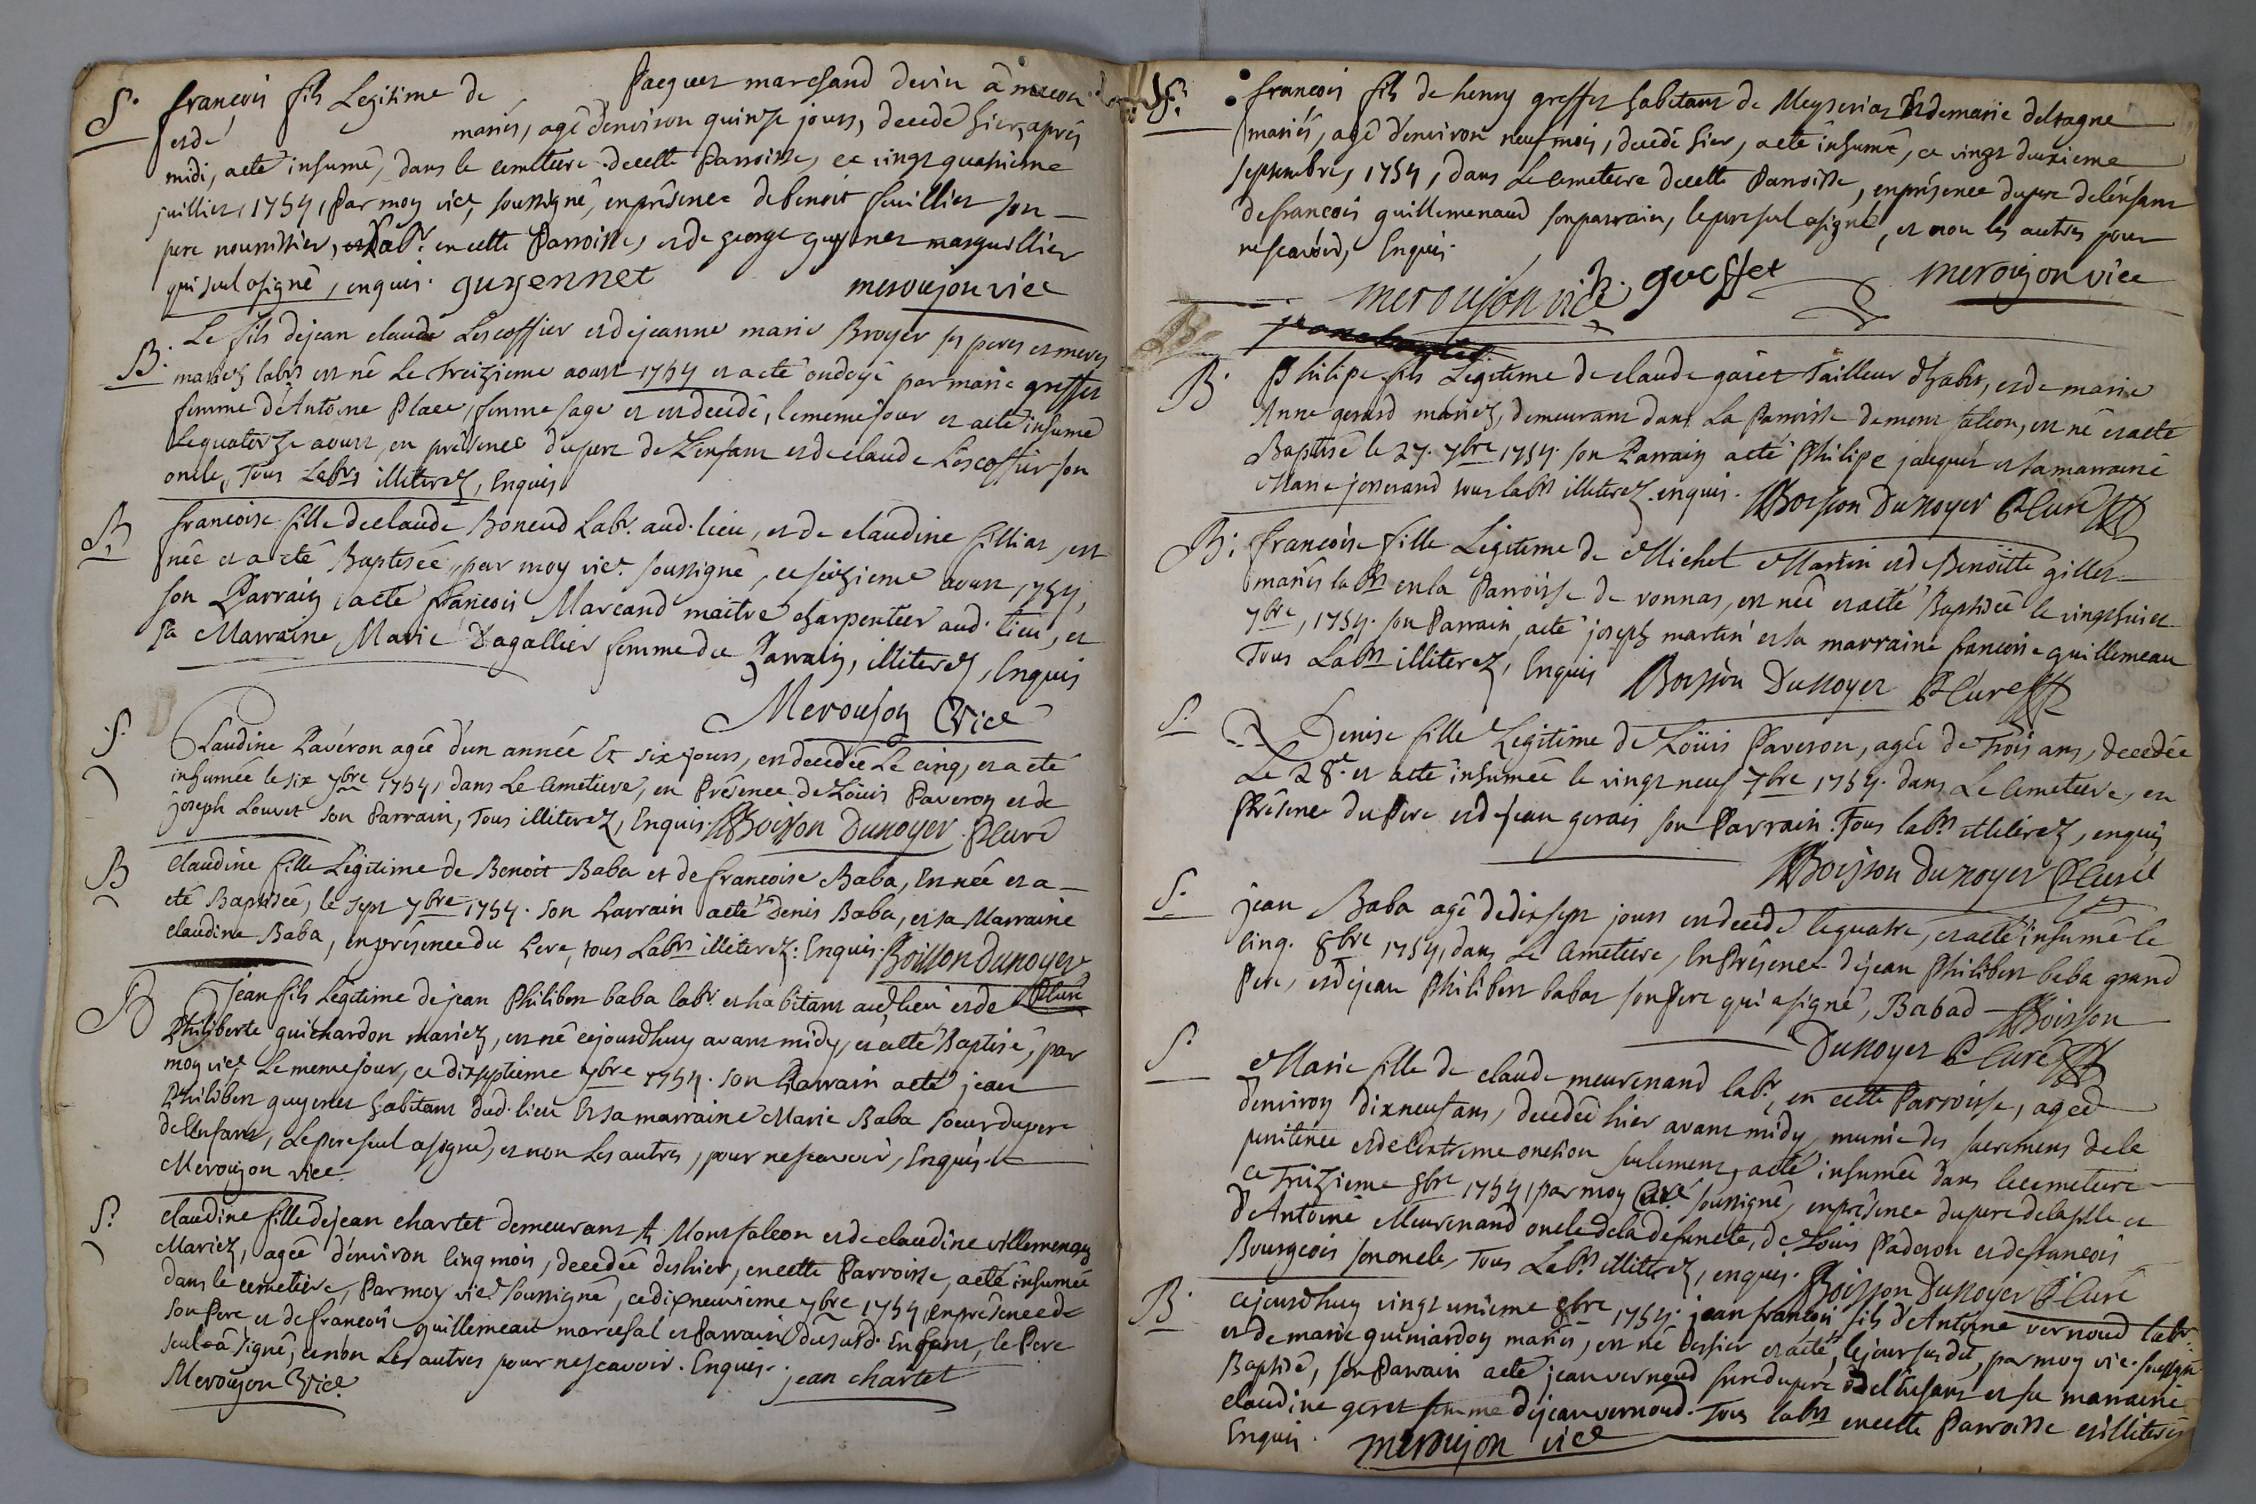 S. francois fils Legitime de Jacques marchand devin à macon
et de mariés, agé denviron quinze jours, decedé hier, aprés
midi, aeté inhumé, dans le cemetiere decette Parroisse, ce vingt quatrieme
juillier, 1754, Par moy vice soussigné, enprésence debenoit fuillier son
pere nourrissier, et labr. encette Parroisse, et de george guyenet marguillier
qui seul asigné, enquis. guyennet meroujon vice
B. Le fils dejean claude Lescoffier et dejeanne marie Broyer ses peres et meres
mariez labrs est né Le treizieme aoust 1754 et aeté ondoyé par marie greffet
femme d'Antoine Place, femme sage et est decedé, lememe jour et aeté inhumé
Lequatorze aoust, en présence dupere de L'enfant et de claude Lescoffier son
oncle, Tous Labrs illiterez, Enquis
B. francoise fille declaude Boneud Labr. aud. lieu, et de claudine fillias, est
née et a eté Baptisée, par moy vice. soussigné, ce seizieme aoust, 1754,
son Parrain aeté francois Marcand maitre charpentier aud. lieu, et
sa Marraine, Marie Dagallier femme du Parrain, illiterez, Enquis
Meroujon Vice
S. Claudine Pavéron agée d'un année Et six jours, est decedée Le cinq, et a eté
inhumée le six 7bre 1754, dans Le Cemetiere, en Présence de Loüis Paveron et de
joseph Louvet son Parrain, Tous illiterez, Enquis. Boisson Dunoyer P Curé
B claudine fille Légitime de Benoit Baba et de francoise Baba, Est née et a
eté Baptisée, le sept 7bre 1754. son Parrain aeté Denis Baba, et sa Marraine
claudine Baba, enprésence du Pere, tous Labrs illiterez: Enquis. Boisson Dunoyer
P Curé
B jean fils Légitime dejean Philibert baba labr. et habitant aud. lieu et de
Philiberte guichardon mariez, est né cejourdhuy avant midy, et aeté Baptisé, par
moy vice. Le meme jour, ce dixseptieme 7bre 1754. son Parrain aeté jean
Philibert guyenet habitant dud. lieu Et sa marraine Marie Baba soeur dupere
de L'enfant, Le pere seul asigné, et non Les autres, pour ne scavoir, Enquis
Meroujon vice.
S. claudine fille dejean chartet demeurant à Montfalcon et de claudine villemengy
Mariez, agée d'environ cinq mois, decedée deshier, encette Parroisse, aeté inhumée
dans le cemetiere, Par moy vice soussigné, cedixneuvieme 7bre 1754, enprésence de
son Pere et de francois guillemeau marechal et Parrain dususd. Enfant, le Pere
seul a signé, et non Les autres pour ne scavoir. Enquis. jean chartet
Meroujon Vice
S. francois fils de henry greffet habitant de Meyseriat Et de marie delragne
mariés, agé d'environ neuf mois, decedé hier, aeté inhumé, ce vingt deuxieme
septembre, 1754, dans Le Cemetiere decette Parroisse, enprésence dupere delenfant
defrancois guillemenaud sonparrain, lepere seul asigné, et non les autres pour
ne scavoir, Enquis.
meroujon vice h. greffet meroujon vice
B. Philipe fils Légitime de claude garét Tailleur d'habit, et de marie
Anne gerard mariez, demeurant dans La Parroisse demont falcon, est né et aeté
Baptisé le 27. 7bre 1754. son Parrain aeté Philipe jacquet et sa marraine
Marie josserand tous labrs illiterez. enquis. Boisson Dunoyer P Curé
B. francoise fille Légitime de Michel Martin et de Benoitte gillet
mariés labrs enla Parroisse de vonnas, est née et aeté Baptisée le vingthuiet
7bre, 1754. son Parrain, aeté joseph martin et sa marraine francoise guillemeau
Tous Labrs illiterez, Enquis Boisson Dunoyer P Curé
S. Denise fille Légitime de Loüis Paveron, agée de Trois ans, decedée
Le 28e. et aeté inhumée le vingt neuf 7bre 1754. dans Le Cemetiere, en
Présence du Pere et de jean gerais son Parrain. Tous labrs illiterez, enquis
Boisson Dunoyer P Curé
S. jean Baba agé de dix sept jours est decedé lequatre, et aeté inhumé le
cinq. 8bre 1754, dans Le Cemetiere, En Présence dejean Philibert baba grand
Pere, et dejean Philibert babat son Pere qui asigné, Babad Boisson
Dunoyer P Curé
S. Marie fille de claude meurenand labr., en cette Parroisse, agee
d'environ dixneuf ans, decedée hier avant midy, munie des sacremens de la
penitence et de L'extreme onction seulement, aeté inhumée dans lecemetiere
ce Treizieme 8bre 1754, par moy Curé soussigné, en présence du pere de la fille et
d'Antoine Meurenand oncle de la defuncte, de Loüis Paderon et de francois
Bourgeois son oncle, Tous Labrs illittez, enquis. Boisson Dunoyer P Curé
B. cejourdhuy vingt unieme 8bre 1754. jean francois fils d'Antoine vernoud labr.
et de marie guiniardon mariés, est né deshier et aeté, lejour susdit, par moy vic. soussigné
Baptisé, son Parrain aeté jean vernoud frere dupere de L'enfant et sa marraine
claudine geret femme dejean vernoud. Tous labrs encette Parroisse et illiteréz
Enquis. meroujon vice